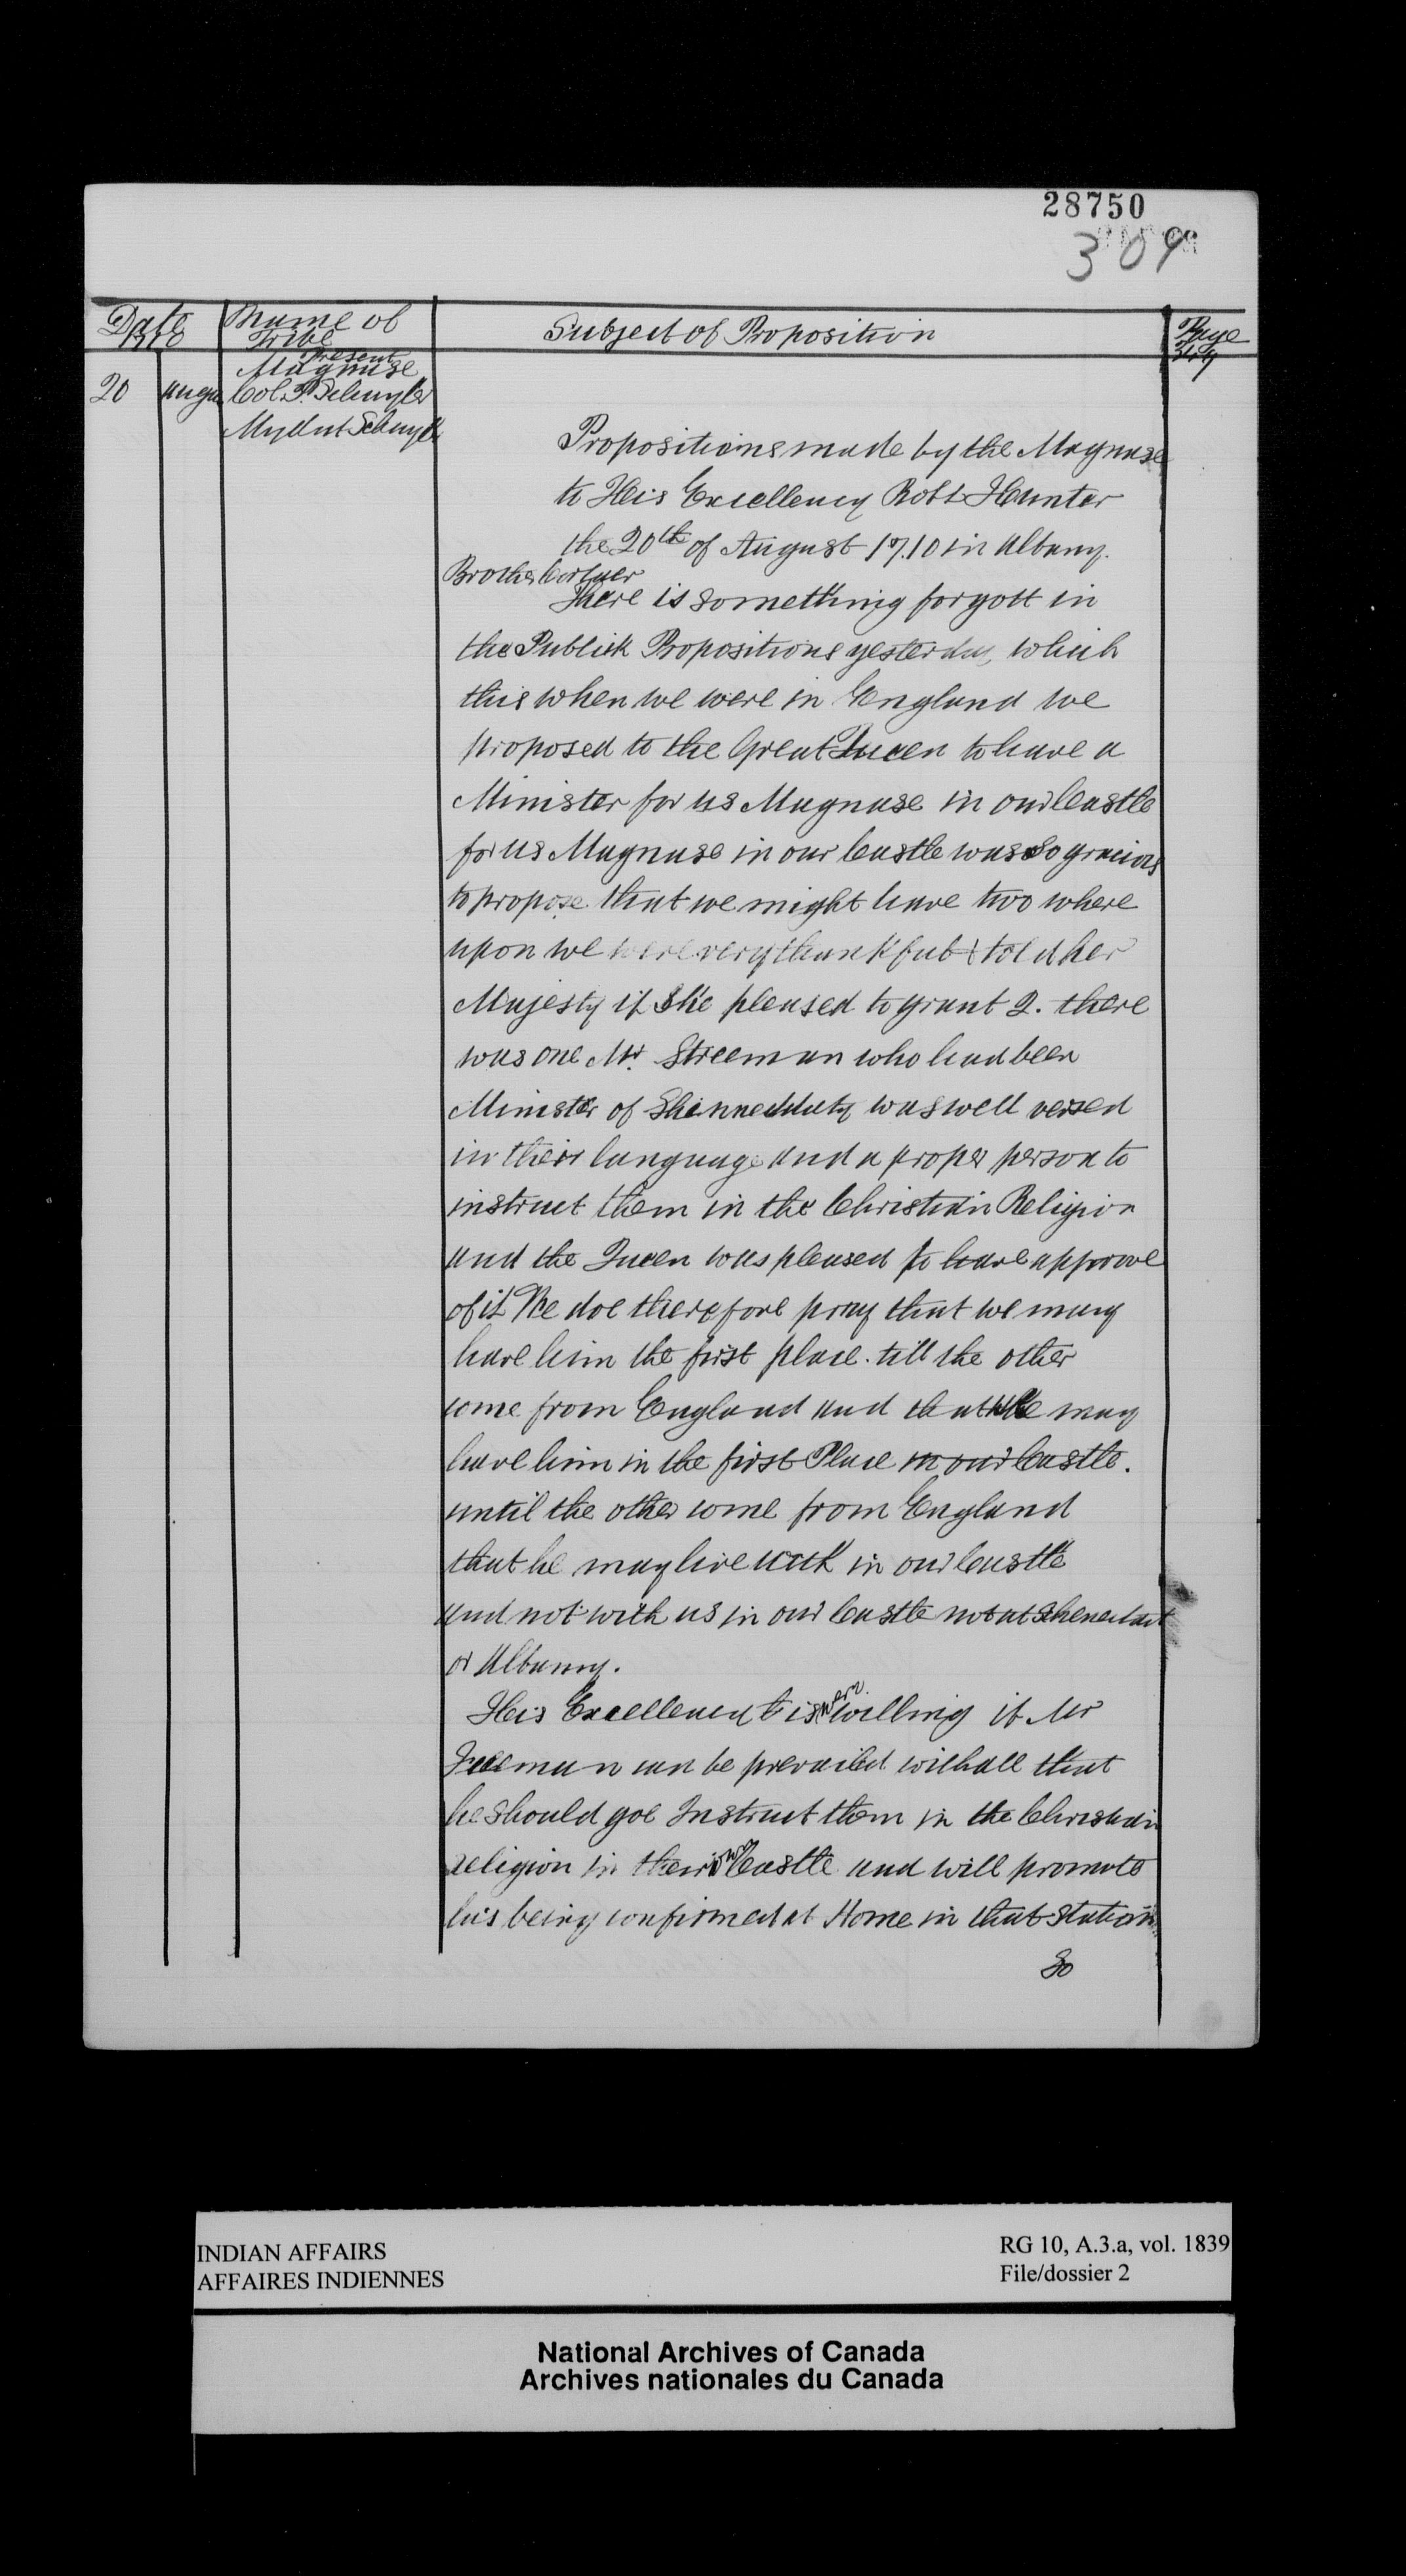 28750
309
Date
1710
Name of
Tribe
Subject of Proposition
Page
309
Present
Maquase
20 Augu
Col. P. Schuyler
Mynd ert Schuyle
Propositions made by the Maquase
to His Excellency Robt Hunter
the 20th of August 1710 in Albany.
Brother Corlaer
There is something forgott in
the Publick Propositions yesterday, which
this when we were in England we
proposed to the Great Queen to have a
Minister for us Maquase in our Castle
for us Maquase in our Castle was so gracious
to propose that we might have two where
upon we were very thankful & told her
Majesty if She pleased to grant 2. there
was one Mr. Streeman who had been
Minister of Shinnechtaty was well versed
in their language and a proper person to
instruct them in the Christian Religion
and the Queen was pleased to have approve
of it We doe therefore pray that we may
have him the first place. till the other
come from England and that we may
have him in the first Place in our Castle.
until the other come from England
that he may live in our Castle
and not with us in our Castle not at Shenechtat
or Albany.
His Excellency is very willing if Mr
Freeman can be prevailed withall that
he should goe Instruct them in the Christian
religion in their own Castle and will promote
his being confirmed at Home in that Station
So
INDIAN AFFAIRS
AFFAIRES INDIENNES
RG 10, A.3.a, vol. 1839
File/dossier 2
National Archives of Canada
Archives nationales du Canada